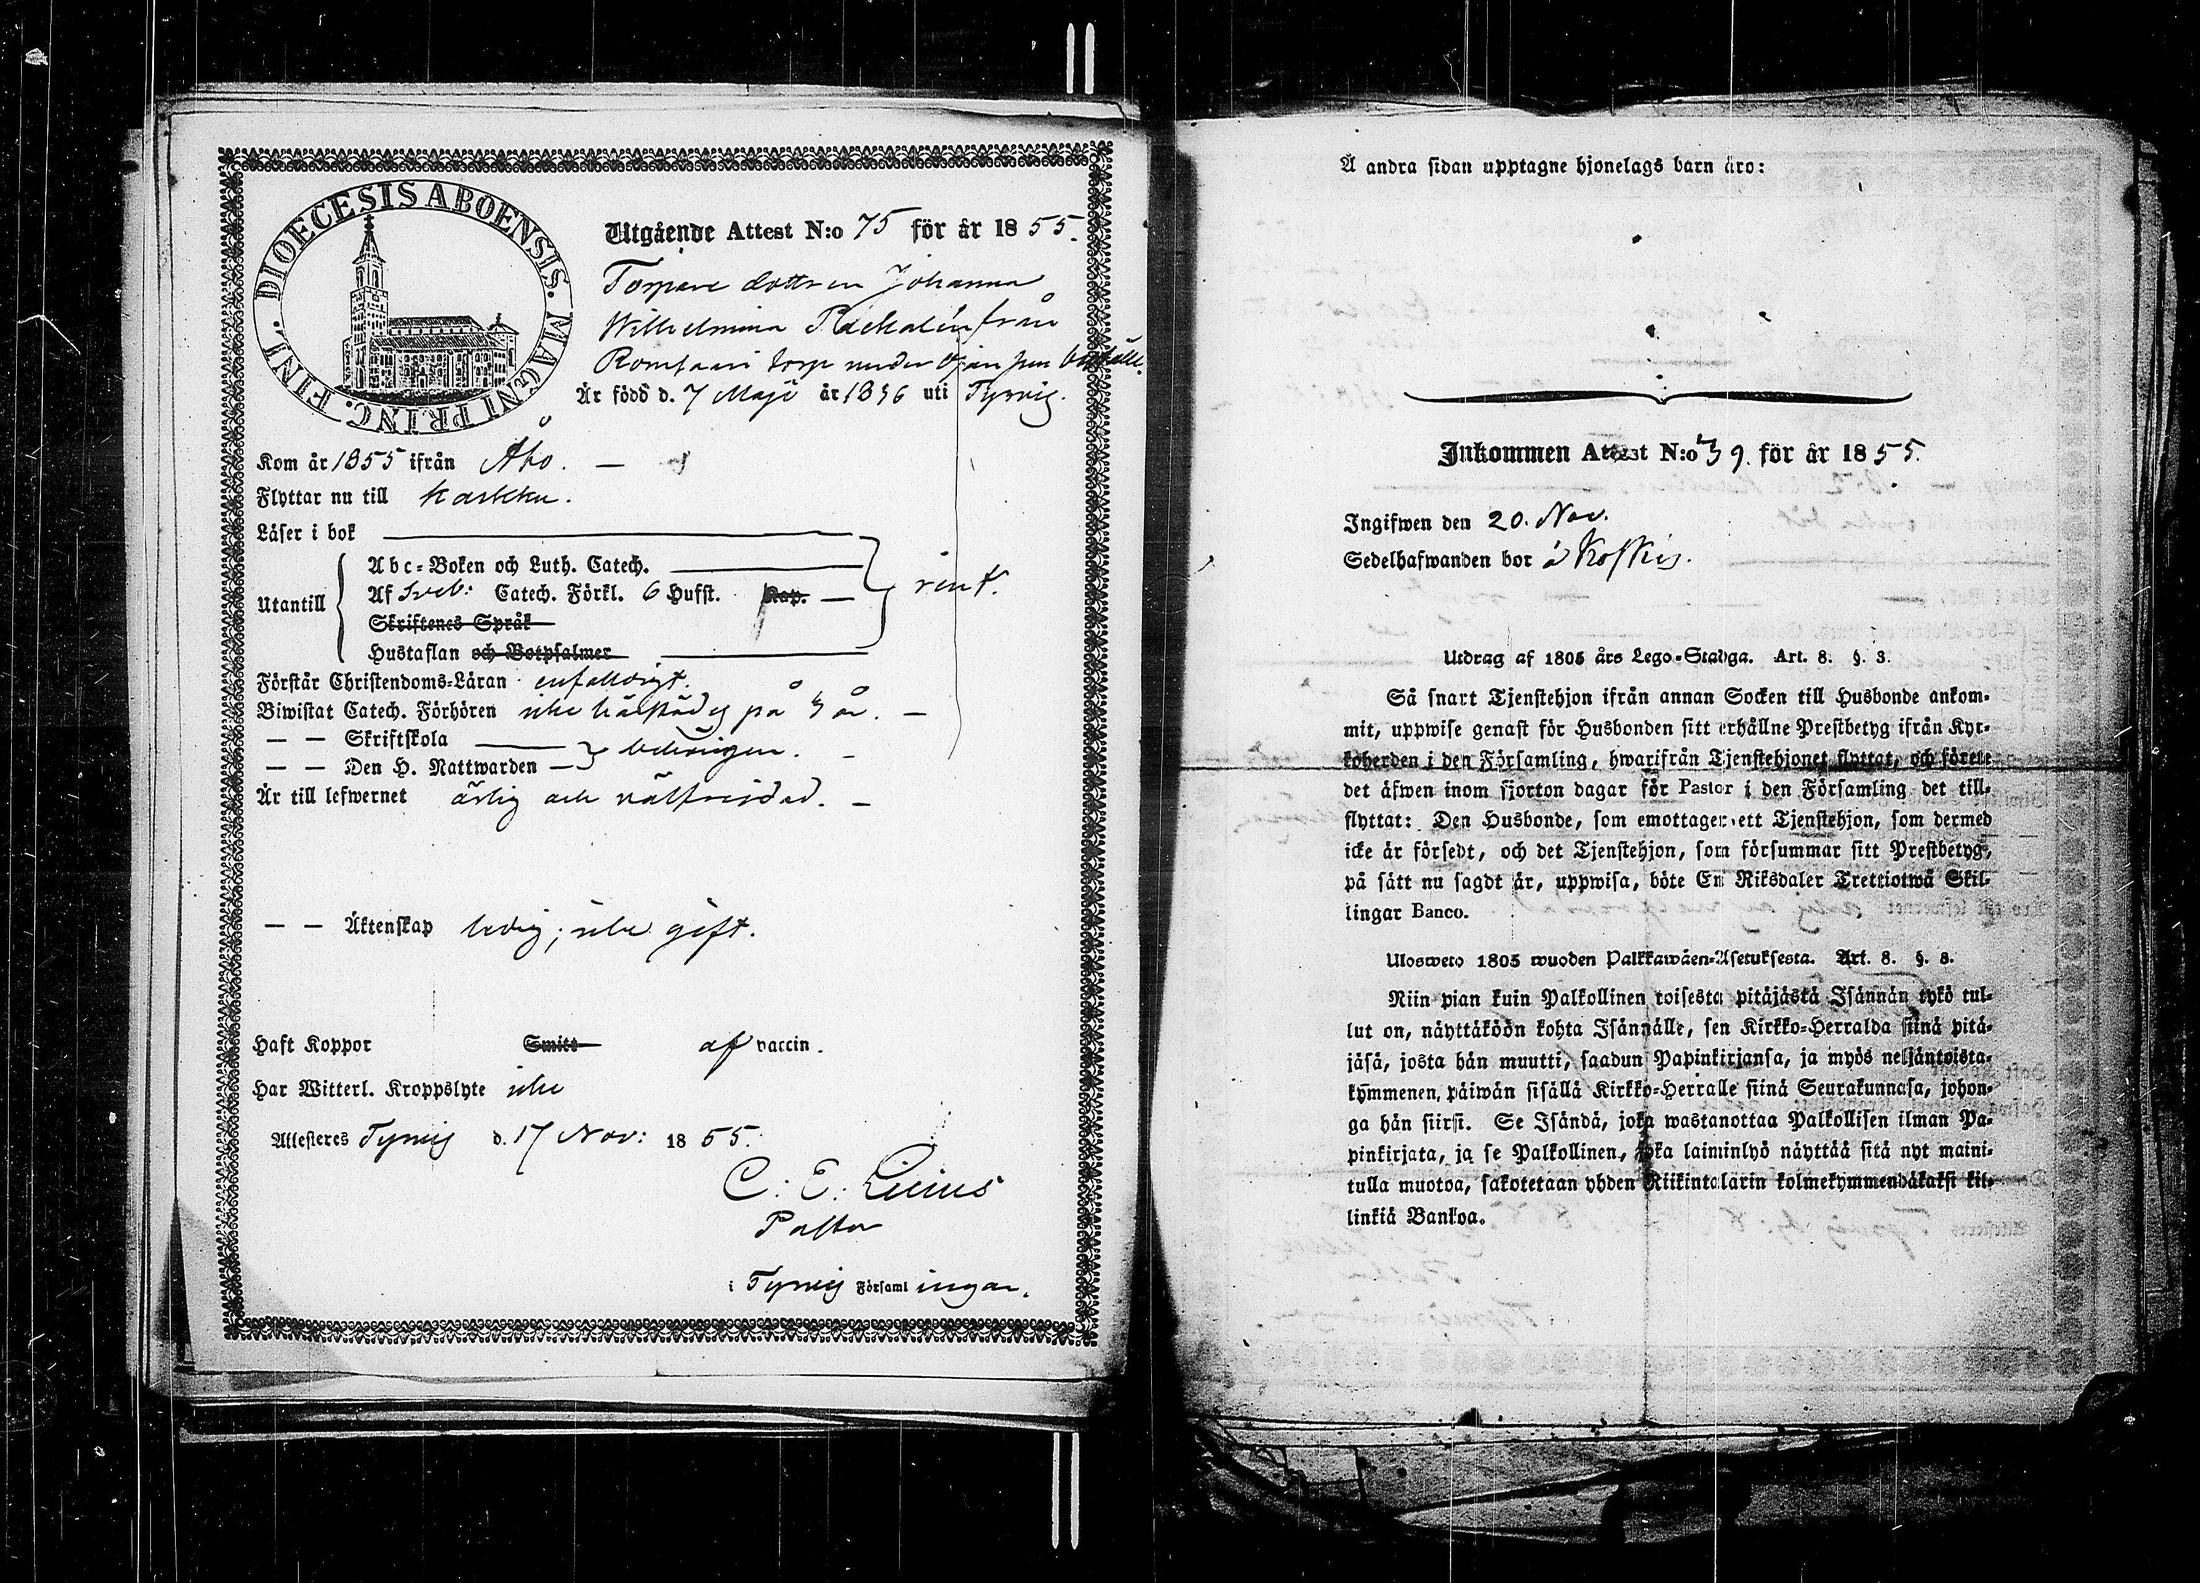 DIOECESIS ABOENSIS. MAGNI PRINC. FINL.
Utgående Attest N:o 75 för år 1855.
Torpare dottren Johanna
Wilhelmina från
torp under
Är född d. 7 Maji år 1836 uti Tyrvis.
Kom år 1855 ifrån Åbo. —
Flyttar nu till Karkku.
Läser i bok
Utantill
Abc-Boken och Luth. Catech.
Af Sveb: Catech. Förkl. 6 Hufst. Kap. —
Skriftenes Språk
Hustaflan och Botpsalmer
rent.
Förstår Christendoms-Läran enfalldigt.
Biwistat Catech. Förhören icke härstädes på 3 år. —
— — Skriftskola
— — Den H. Nattwarden — behörigen. —
Är till lefwernet ärlig och välfrejdad. —
— — Äktenskap ledig; icke gift.
Haft Koppor Smitt af vaccin.
Har Witterl. Kroppslyte icke
Attesteres Tyrvis d. 17 Nov: 1855.
C. E. Lilius
Pastor
i Tyrvis Församlingar.
Å andra sidan upptagne hjonelags barn äro:
Inkommen Attest N:o 39. för år 1855.
Ingifwen den 20. Nov.
Sedelhafwanden bor å Koskis.
Utdrag af 1805 års Lego-Stadga. Art. 8. §. 3.
Så snart Tjenstehjon ifrån annan Socken till Husbonde ankom-
mit, uppwise genast för Husbonden sitt erhållne Prestbetyg ifrån Kyr-
koherden i den Församling, hwarifrån Tjenstehjonet flyttat, och förete
det äfwen inom fjorton dagar för Pastor i den Församling det till-
flyttat: Den Husbonde, som emottager ett Tjenstehjon, som dermed
icke är försedt, och det Tjenstehjon, som försummar sitt Prestbetyg,
på sätt nu sagdt är, uppwisa, böte En Riksdaler Trettiotwå Skil-
lingar Banco.
Ulosweto 1805 wuoden Palkkawäen-Asetuksesta. Art. 8. §. 8.
Niin pian kuin Palkollinen toisesta pitäjästä Isännän tykö tul-
lut on, näyttäköön kohta Isännälle, sen Kirkko-Herralda siinä pitä-
jäsä, josta hän muutti, saadun Papinkirjansa, ja myös neljäntoista-
kymmenen päiwän sisällä Kirkko-Herralle siinä Seurakunnasa, johon-
ga hän siirsi. Se Isändä, joka wastanottaa Palkollisen ilman Pa-
pinkirjata, ja se Palkollinen, joka laiminlyö näyttää sitä nyt maini-
tulla muotoa, sakotetaan yhden Riikintalarin kolmekymmendäkaksi kil-
linkiä Bankoa.